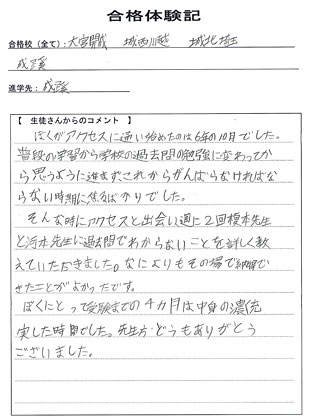 合格体験記
合格校（全て）: 大宮開成 城西川越 城北埼玉
成蹊
進学先: 成蹊
【 生徒さんからのコメント 】
ぼくがアクセスに通い始めたのは6年の10月でした。
普段の学習から学校の過去問の勉強に変わってか
ら思うように進まず、これからがんばらなければな
らない時期に焦るばかりでした。
そんな時にアクセスと出会い週に2回榎本先生
と河本先生に過去問でわからないことを詳しく教
えていただきました。なによりもその場で納得で
きたことがよかったです。
ぼくにとって受験までの4カ月は中身の濃い充
実した時間でした。先生方、どうもありがとう
ございました。